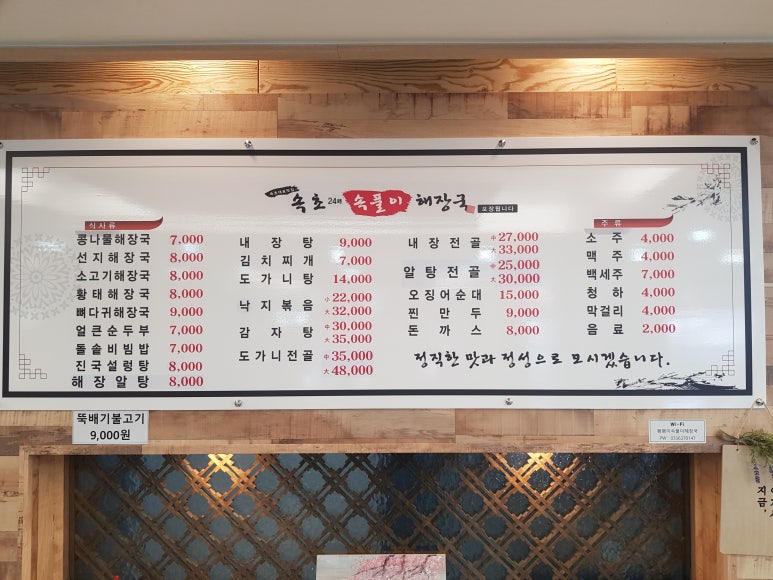 속초 24시 속풀이 해장국 포장됩니다
식사류
콩나물해장국 7,000
선지해장국 8,000
소고기해장국 8,000
황태해장국 8,000
뼈다귀해장국 9,000
얼큰순두부 7,000
돌솥비빔밥 7,000
진국설렁탕 8,000
해장알탕 8,000
내장탕 9,000
김치찌개 7,000
도가니탕 14,000
낙지볶음 中22,000
大32,000
감자탕 中30,000
大35,000
도가니전골 中35,000
大48,000
내장전골 中27,000
大33,000
알탕전골 中25,000
大30,000
오징어순대 15,000
찐만두 9,000
돈까스 8,000
정직한 맛과 정성으로 모시겠습니다.
주류
소주 4,000
맥주 4,000
백세주 7,000
청하 4,000
막걸리 4,000
음료 2,000
뚝배기불고기
9,000원
Wi-Fi
지금,